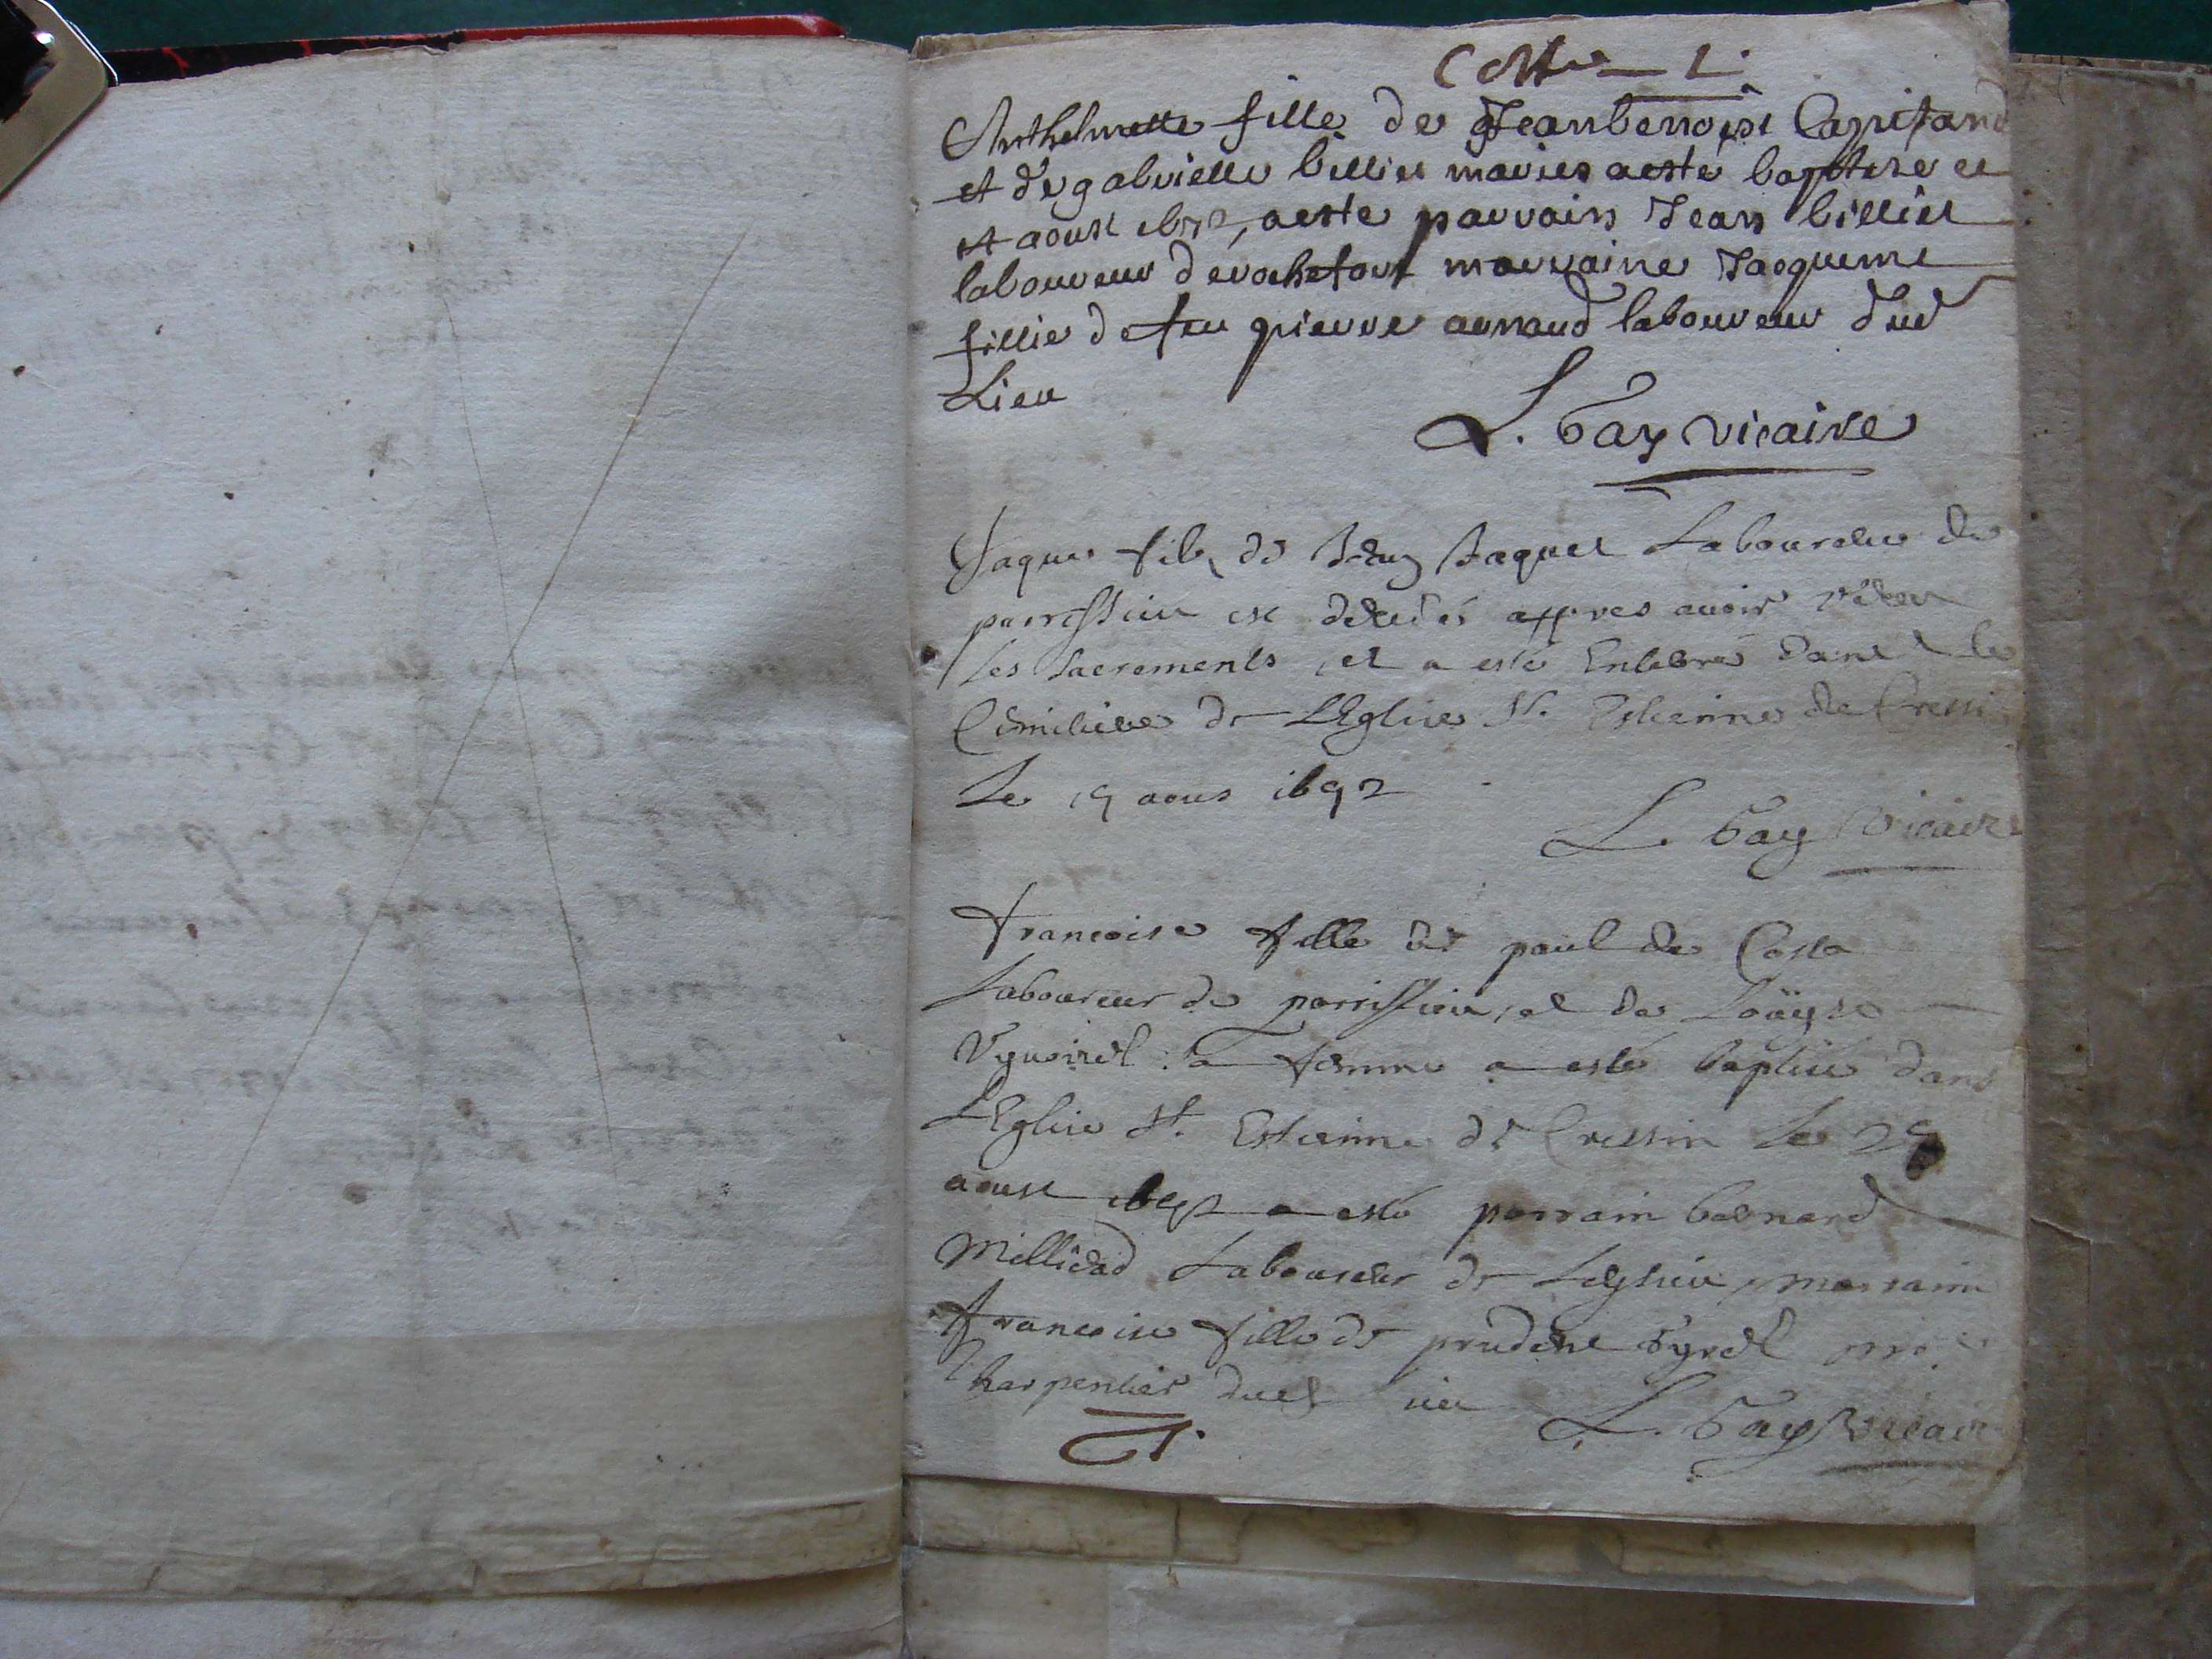 Cotte 1.
Anthelmette fille de Jean benoist Capitand
et de gabrielle billiet mariés a esté baptisé ce
aoust 1692, a esté parrain Jean billiet
laboureur de rochefort marraine Jaqueme
fillie de feu pierre arnaud laboureur dud
Lieu
L. bay vicaire
Jaques fils de Jean Jaquet Laboureur de
parrissieu est decedés appres avoir receu
les sacrements, et a esté Enterré dans le
Cimitiere de LEglise St. Estienne de Cressi
Le 19 aous 1692
L. bay vicaire
francoise fille de paul de Costa
Laboureur de parrissieu, et de Loüyse
sa femme a esté baptisé dans
LEglise St. Estienne de Cressin Le
aoust 1692 a esté parrain bernard
Laboureur de marraine
francoise fille de prudent
charpentier dud lieu
L. bay vicaire